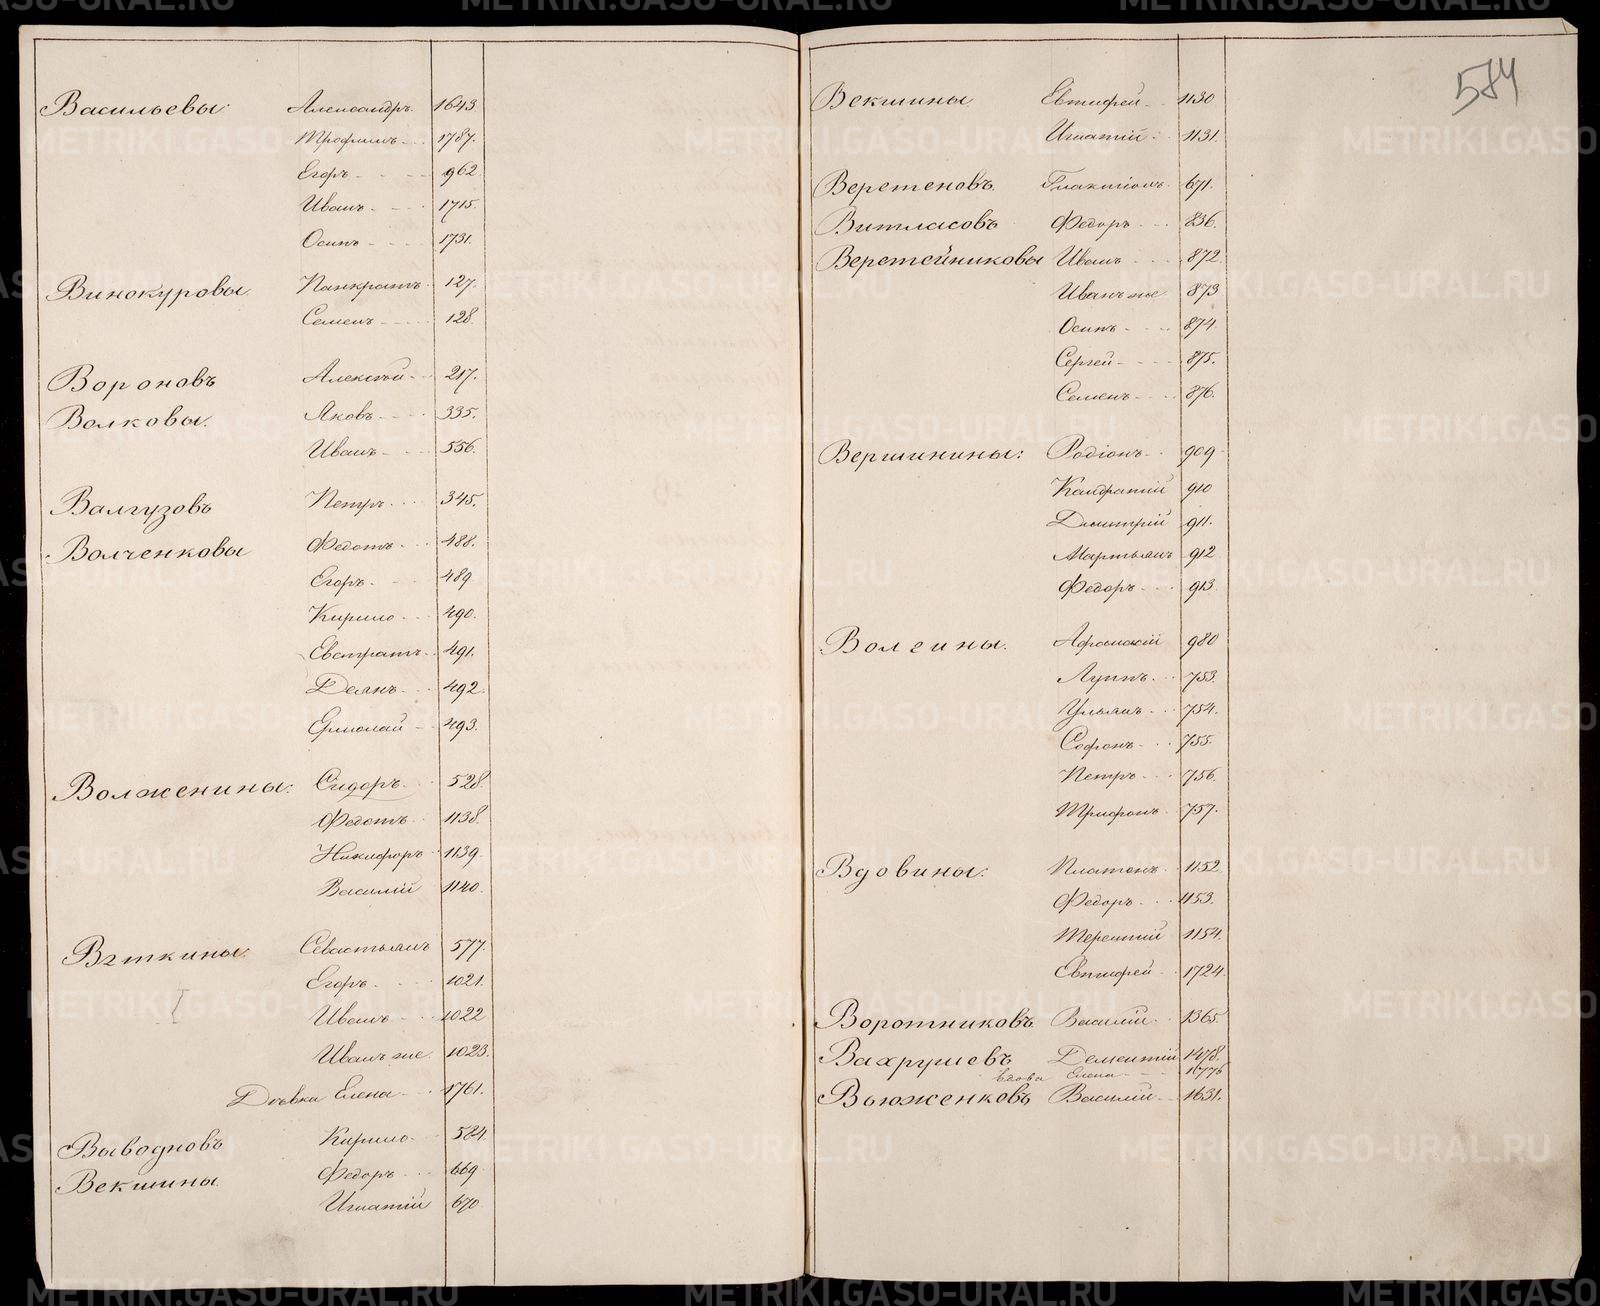 Васильевы Александръ 1643
Трофимъ 1787.
Егоръ 962
Иванъ 1715
Осипъ 1731.
Винокуровы Панкратъ 127.
Семенъ 128
Вороновъ Алексѣй 217.
Волковы. Яковъ 335.
Иванъ 556.
Валгузовъ Петръ 345.
Волченковы Федотъ 488.
Егоръ 489
Кирило 490.
Евстратъ 491.
Демнъ 492
Ермолай 493.
Волженины: Сидоръ 528
Федотъ 1138.
Никифоръ 1139.
Василій 1140.
Вяткины Севастьянъ 577.
Егоръ 1021.
Иванъ 1022
Иванъ же 1023.
Дѣвка Елена 1761.
Выводновъ Кирило 584.
Векшины Федоръ 669
Игнатій 670
584
Векшины Евтифей 1130
Игнатій 1131.
Веретеновъ Галактіонъ 671.
Витласовъ Федоръ 836.
Веретейниковы Иванъ 872
Иванъ же 873
Осипъ 874
Сергей 875.
Семенъ 876.
Вершинины: Родіонъ 909
Кандратій 910
Дмитрій 911.
Мартьянъ 912
Федоръ 913
Волгины. Афонасій 980
Лупъ 753.
Ульянъ 754.
Софонъ 755.
Петръ 756.
Трифонъ 757.
Вдовины: Платонъ 1152
Федоръ 1153.
Терентій 1154.
Евтифей 1724
Воротниковъ Василій 1365.
Вахрушевъ Дементій 1478.
вдова Елена 1677б
Вьюженковъ Василій 1631.